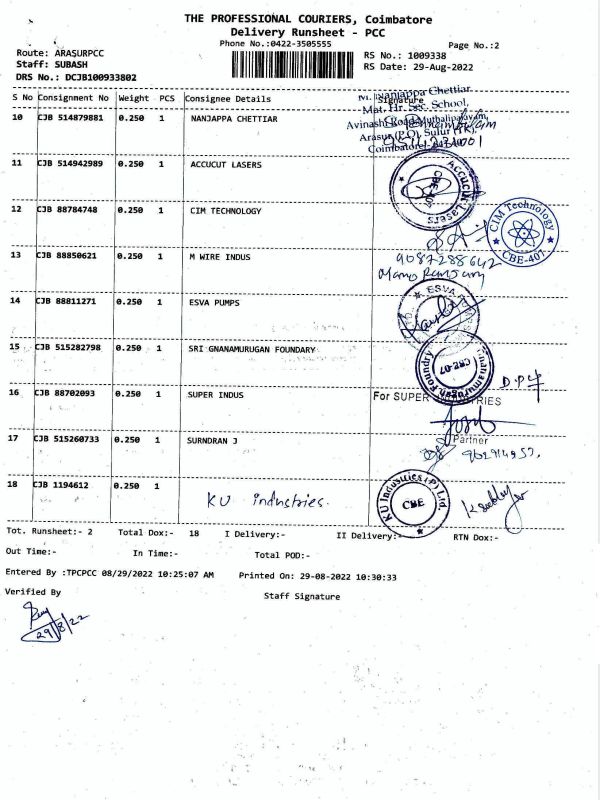 THE PROFESSIONAL COURIERS, Coimbatore
Delivery Runsheet - PCC
Phone No.:0422-3505555
Page No.:2
Route: ARASURPCC
Staff: SUBASH
DRS No.: DCJB100933802
RS No.: 1009338
RS Date: 29-Aug-2022
S No Consignment No Weight PCS Consignee Details Signature
10 CJB 514879881 0.250 1 NANJAPPA CHETTIAR
M. Nanjappa Chettiar
Mat. Hr. Sec. School,
Avinashi Road, Muthalipalayam,
Arasur (P.O), Sulur (TK),
Coimbatore
11 CJB 514942989 0.250 1 ACCUCUT LASERS
Accucut Lasers
CBE-407
12 CJB 88784748 0.250 1 CIM TECHNOLOGY
CIM Technology
CBE-407
13 CJB 88850621 0.250 1 M WIRE INDUS
9087288642
14 CJB 88811271 0.250 1 ESVA PUMPS
ESVA
15 CJB 515282798 0.250 1 SRI GNANAMURUGAN FOUNDARY
Gnanamurugan Foundry
CBE-07
16 CJB 88702093 0.250 1 SUPER INDUS
For SUPER INDUSTRIES
Partner
17 CJB 515260733 0.250 1 SURNDRAN J
18 CJB 1194612 0.250 1 KU industries.
KU Industries (P) Ltd.
CBE
Tot. Runsheet:- 2 Total Dox:- 18 I Delivery:- II Delivery:- RTN Dox:-
Out Time:- In Time:- Total POD:-
Entered By :TPCPCC 08/29/2022 10:25:07 AM Printed On: 29-08-2022 10:30:33
Verified By Staff Signature
29/8/22